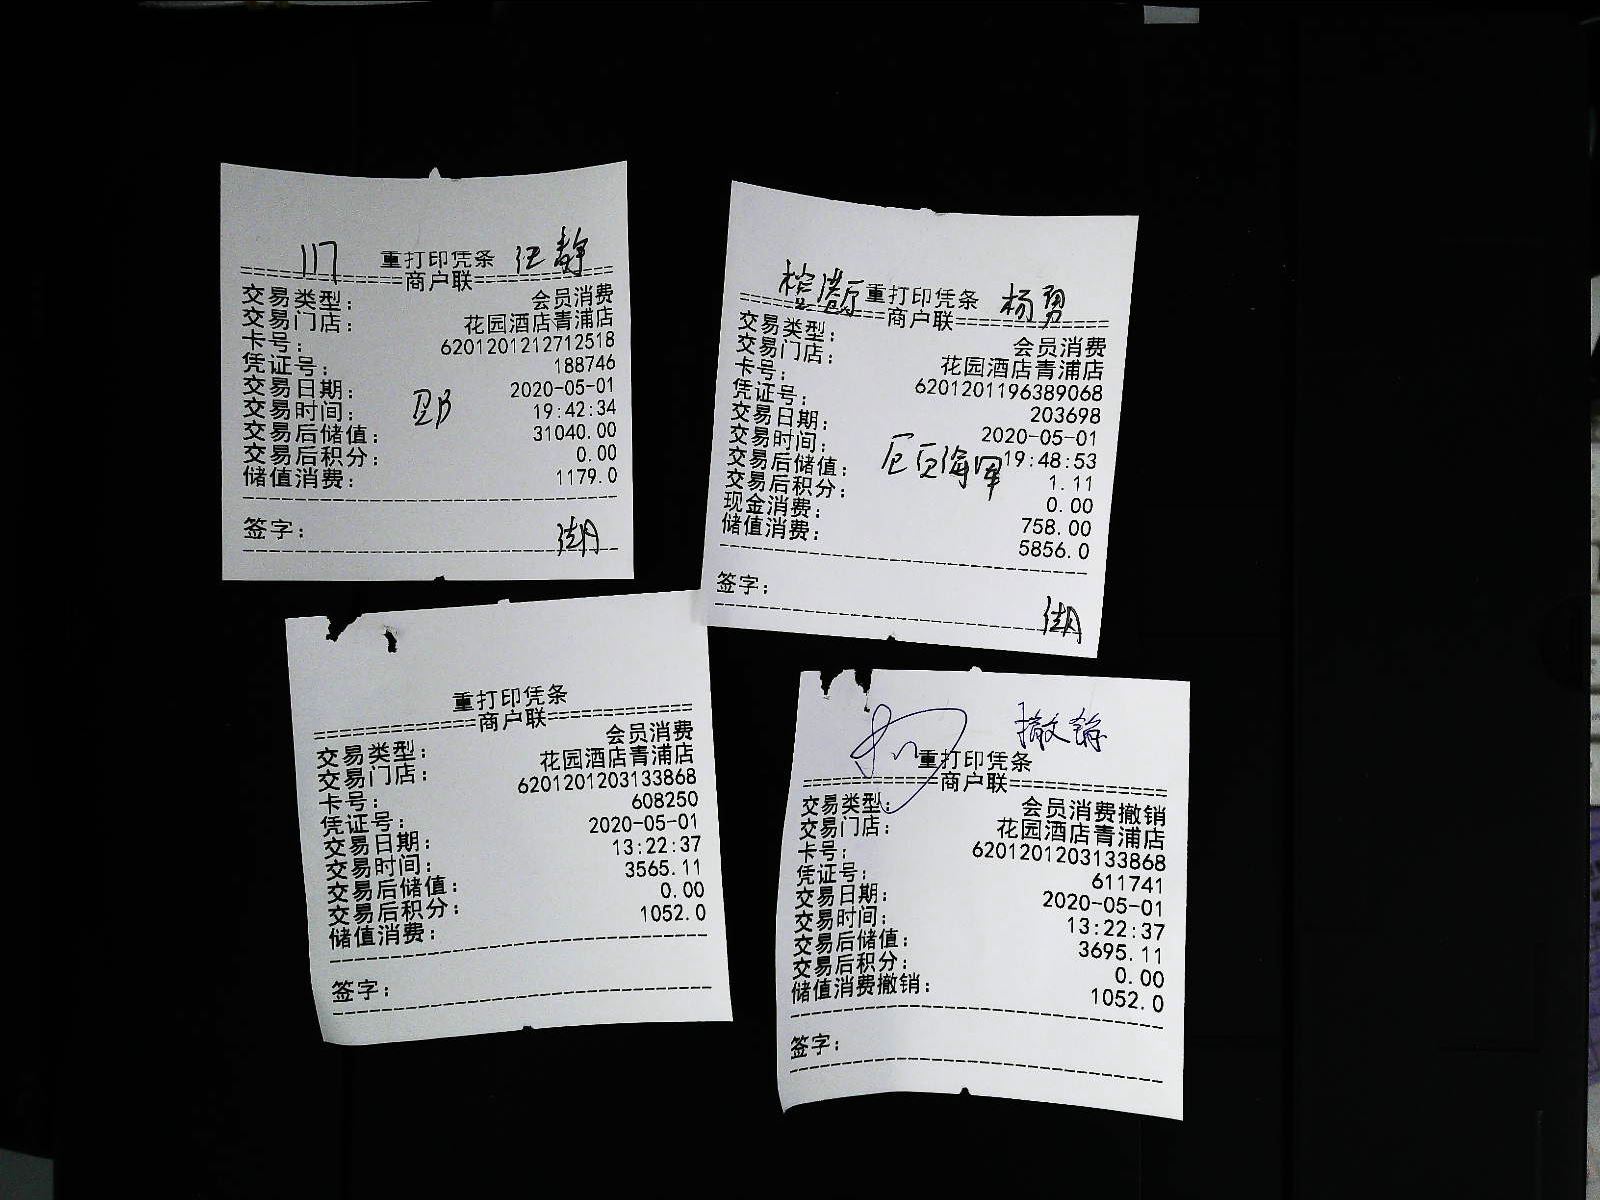 117 重打印凭条 汪静
商户联
交易类型: 会员消费
交易门店: 花园酒店青浦店
卡号: 6201201212712518
凭证号: 188746
交易日期: 2020-05-01
交易时间: 19:42:34
交易后储值: 31040.00
交易后积分: 0.00
储值消费: 1179.0
签字:
重打印凭条 杨勇
商户联
交易类型: 会员消费
交易门店: 花园酒店青浦店
卡号: 6201201196389068
凭证号: 203698
交易日期: 2020-05-01
交易时间: 19:48:53
交易后储值: 1.11
交易后积分: 0.00
现金消费: 758.00
储值消费: 5856.0
签字:
重打印凭条
商户联
交易类型: 会员消费
交易门店: 花园酒店青浦店
卡号: 6201201203133868
凭证号: 608250
交易日期: 2020-05-01
交易时间: 13:22:37
交易后储值: 3565.11
交易后积分: 0.00
储值消费: 1052.0
签字:
撤销
重打印凭条
商户联
交易类型: 会员消费撤销
交易门店: 花园酒店青浦店
卡号: 6201201203133868
凭证号: 611741
交易日期: 2020-05-01
交易时间: 13:22:37
交易后储值: 3695.11
交易后积分: 0.00
储值消费撤销: 1052.0
签字: